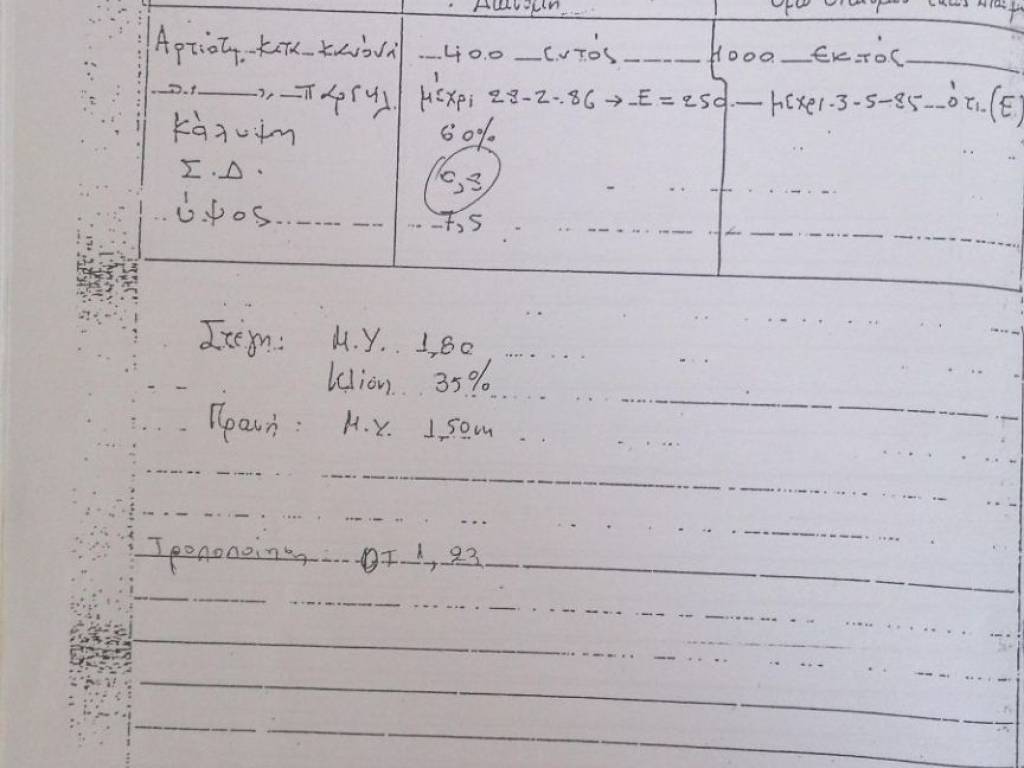 Αρτιότη κατα κανόνα 400 εντός 1000 εκτός
" " παρέκλ. μέχρι 28-2-86 → Ε = 250 μέχρι 3-5-85 ότι (Ε)
Κάλυψη 60%
Σ.Δ. 0,8
ύψος 7,5
Στέγη: Μ.Υ. 1,80
Κλίση 35%
Πρανή: Μ.Υ. 1,50m
Τροποποίηση 1, 23